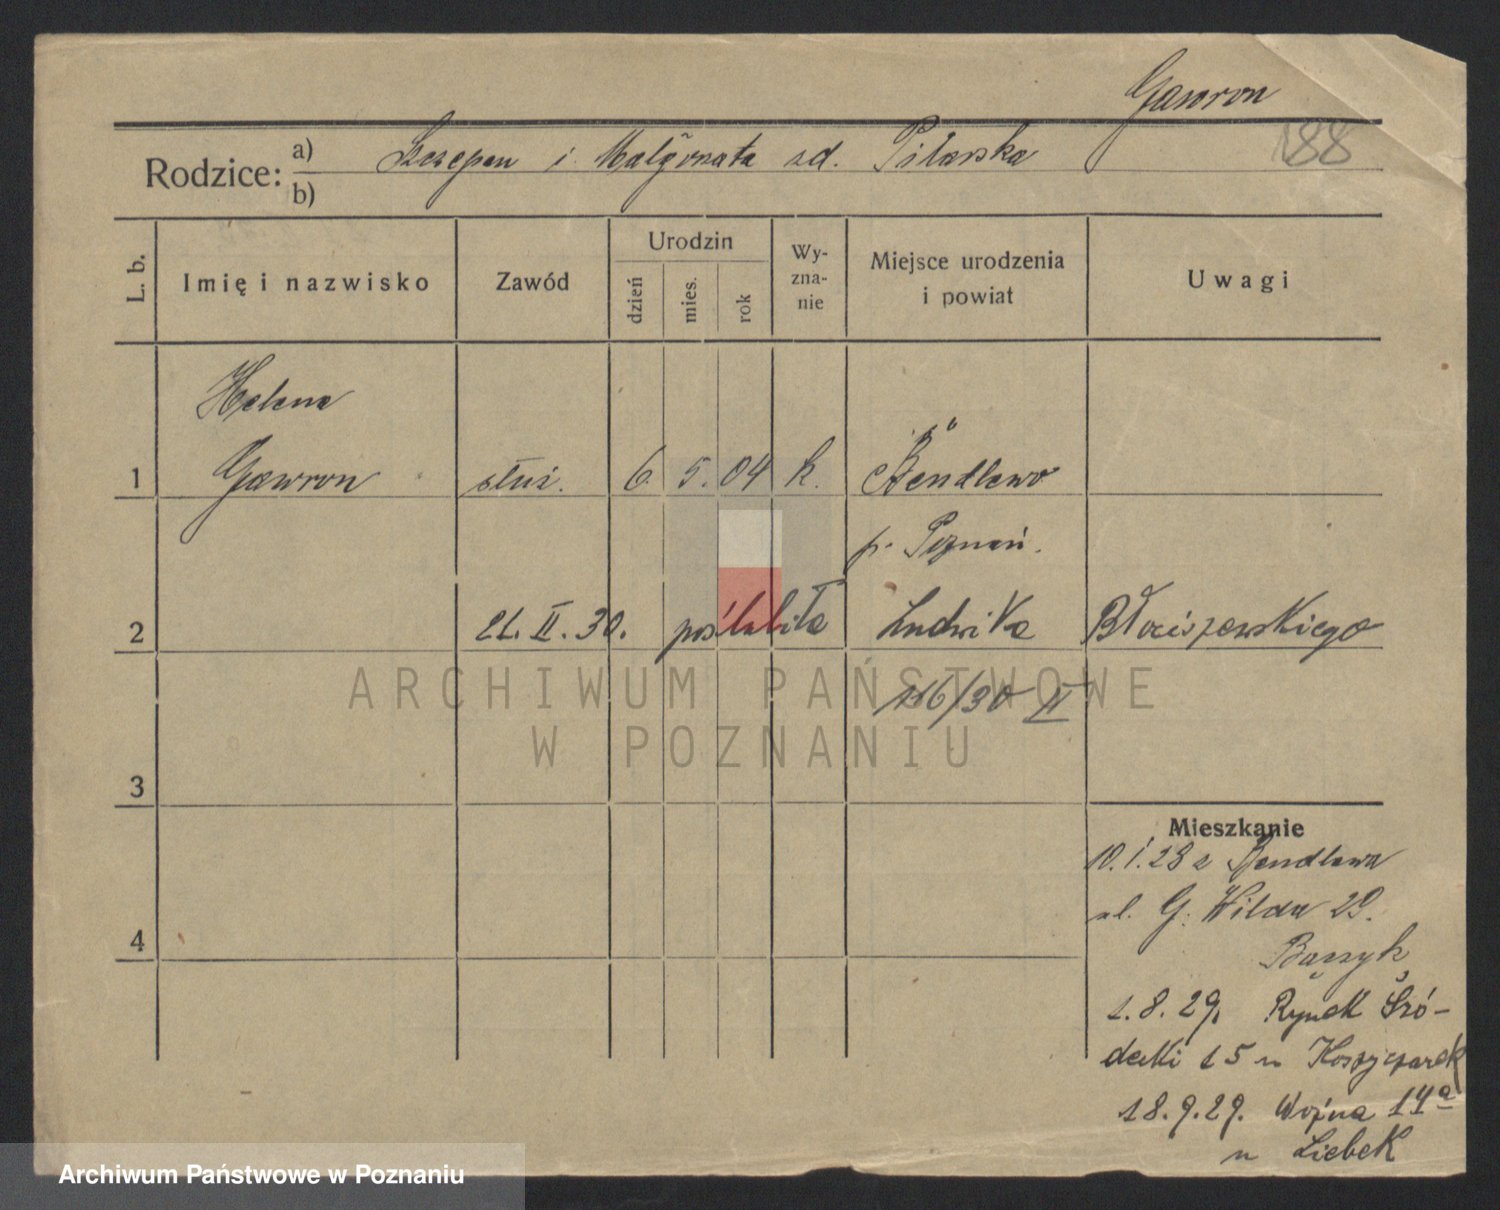 Gawron
188
Rodzice: a) Szczepan i Małgorzata zd. Pilarska
b)
L. b. Imię i nazwisko Zawód Urodzin dzień mies. rok Wyznanie Miejsce urodzenia i powiat Uwagi
Helena
1 Gawron służ. 6. 5. 04 k. Bendlewo
p. Poznań.
2 21. II. 30. poślubiła Ludwika Błociszewskiego
116/30 II
ARCHIWUM PAŃSTWOWE
W POZNANIU
3
Mieszkanie
10.1.28 z Bendlewa
ul. G. Wilda 29.
4
1.8.29. Rynek Śró-
decki 15 u
18.9.29. Woźna 14a
u Liebek
Archiwum Państwowe w Poznaniu